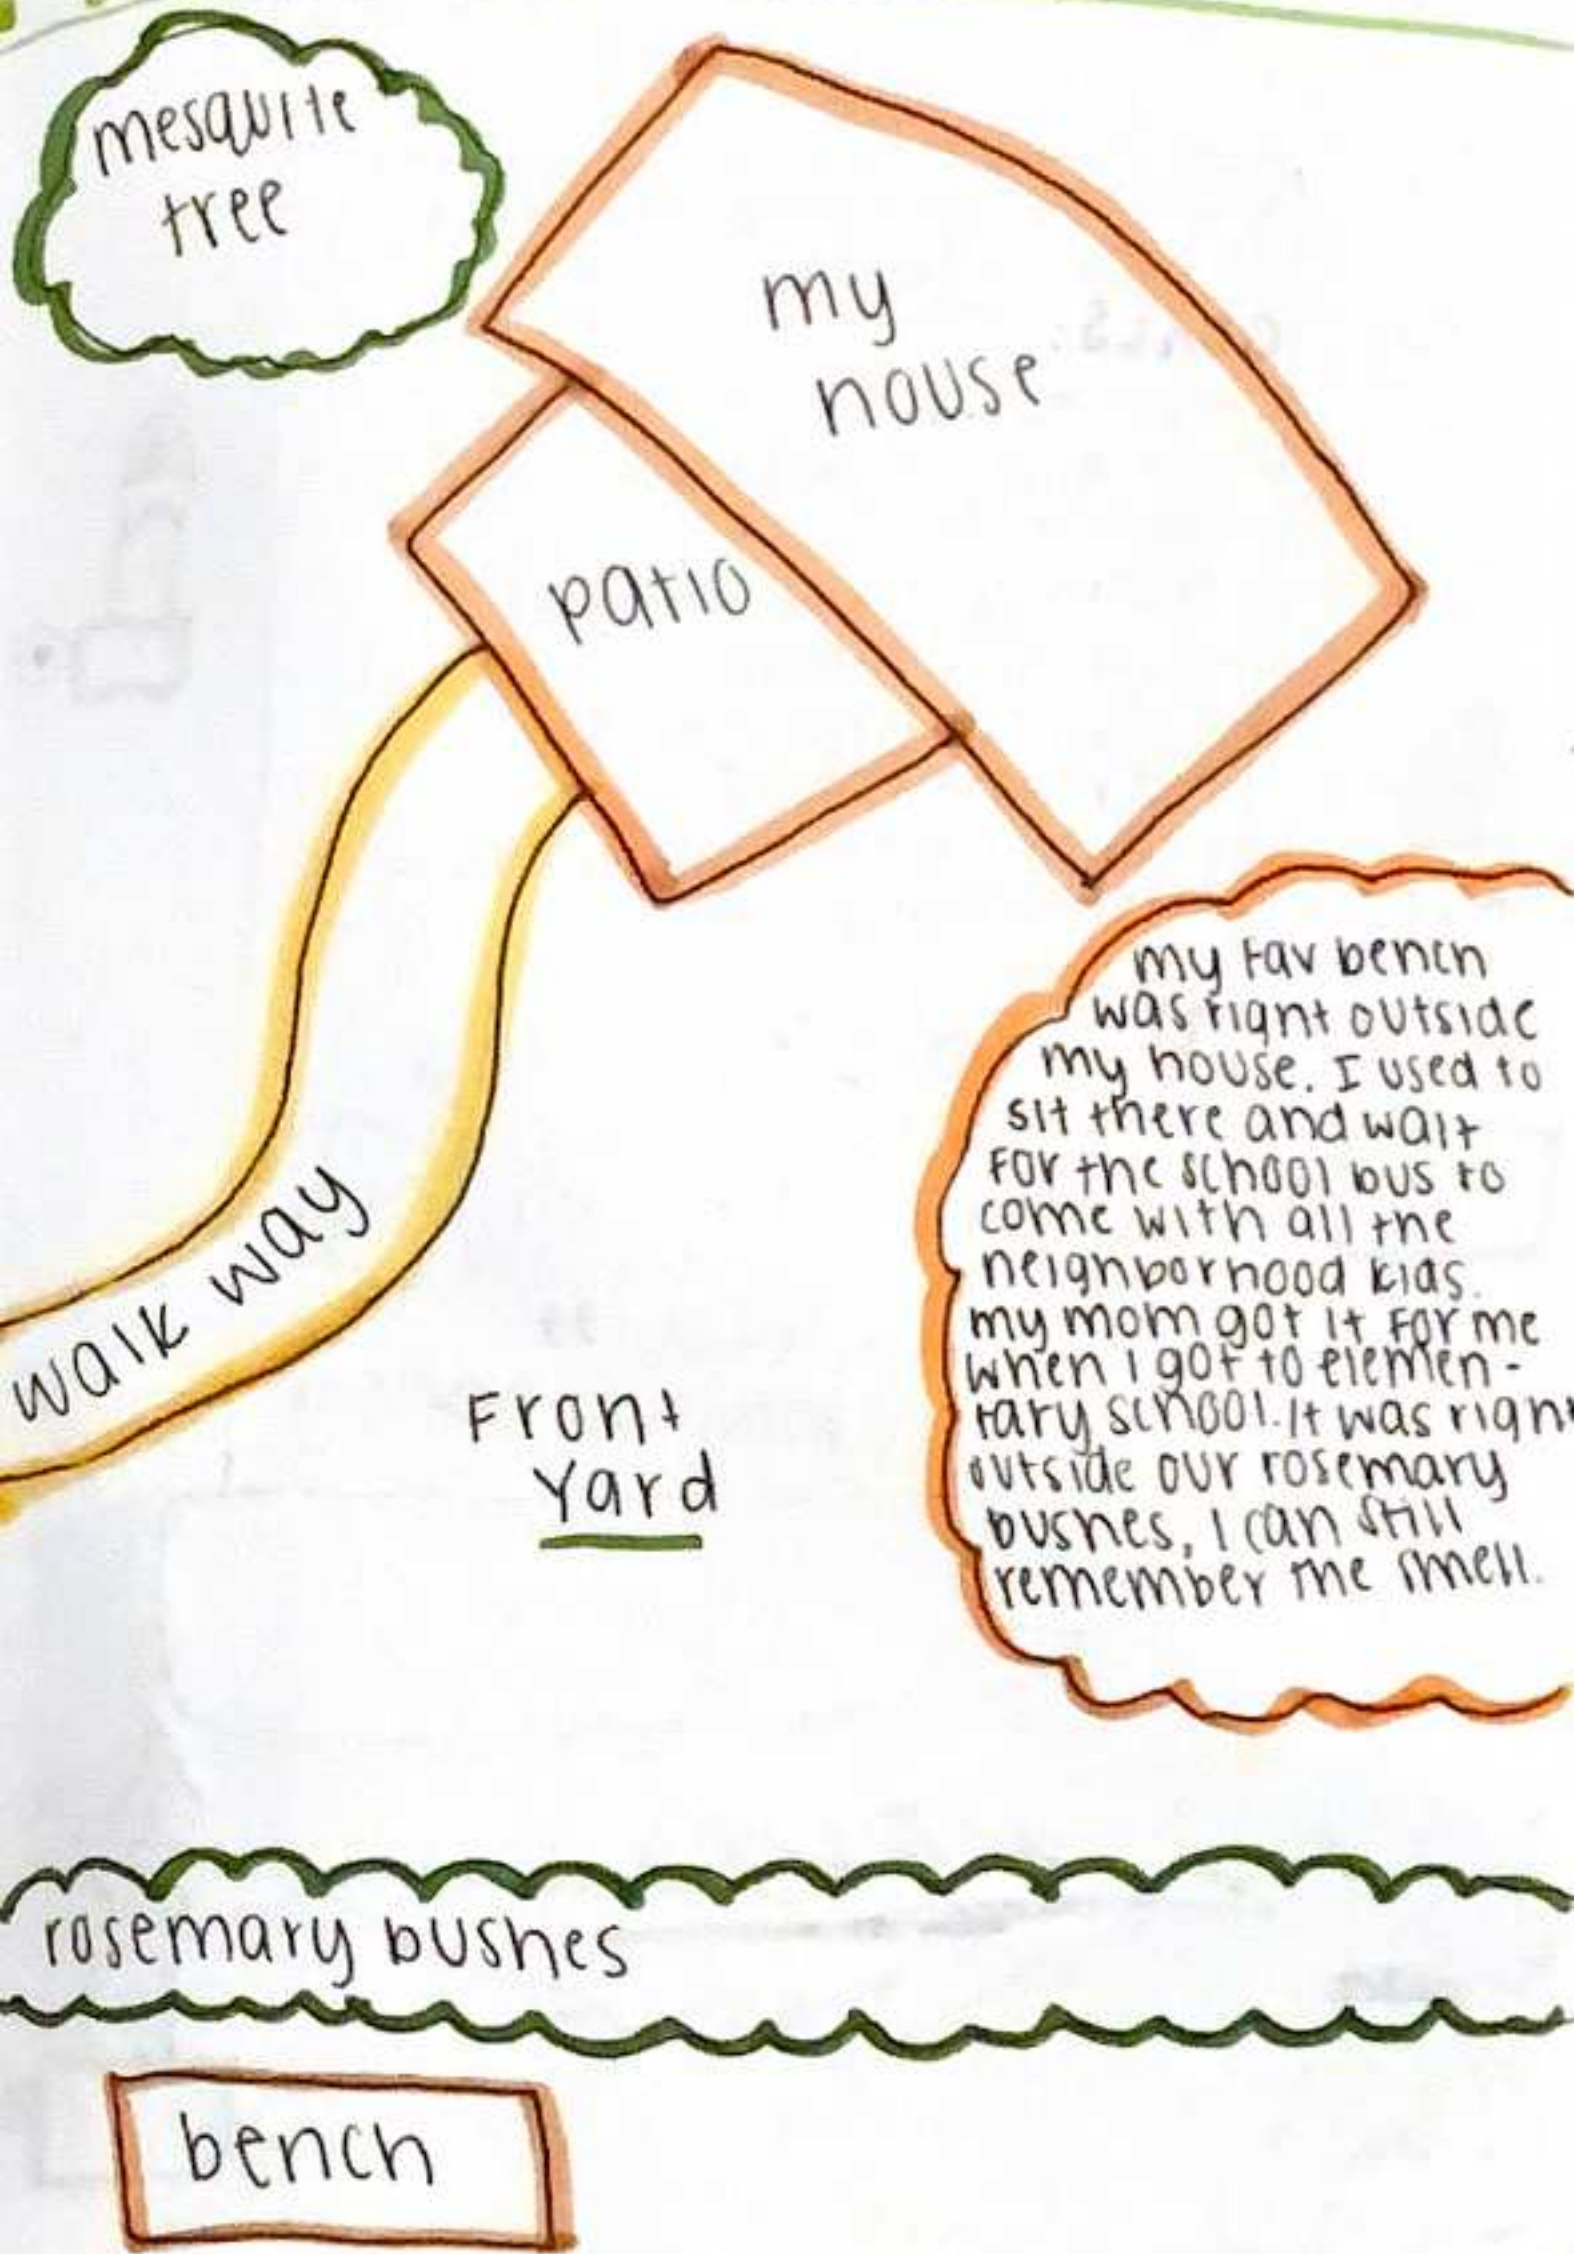 mesquite
tree
my
house
patio
walk way
Front
Yard
my fav bench
was right outside
my house. I used to
sit there and wait
for the school bus to
come with all the
neighborhood kids.
my mom got it for me
when I got to elemen-
tary school. It was right
outside our rosemary
bushes, I can still
remember the smell.
rosemary bushes
bench